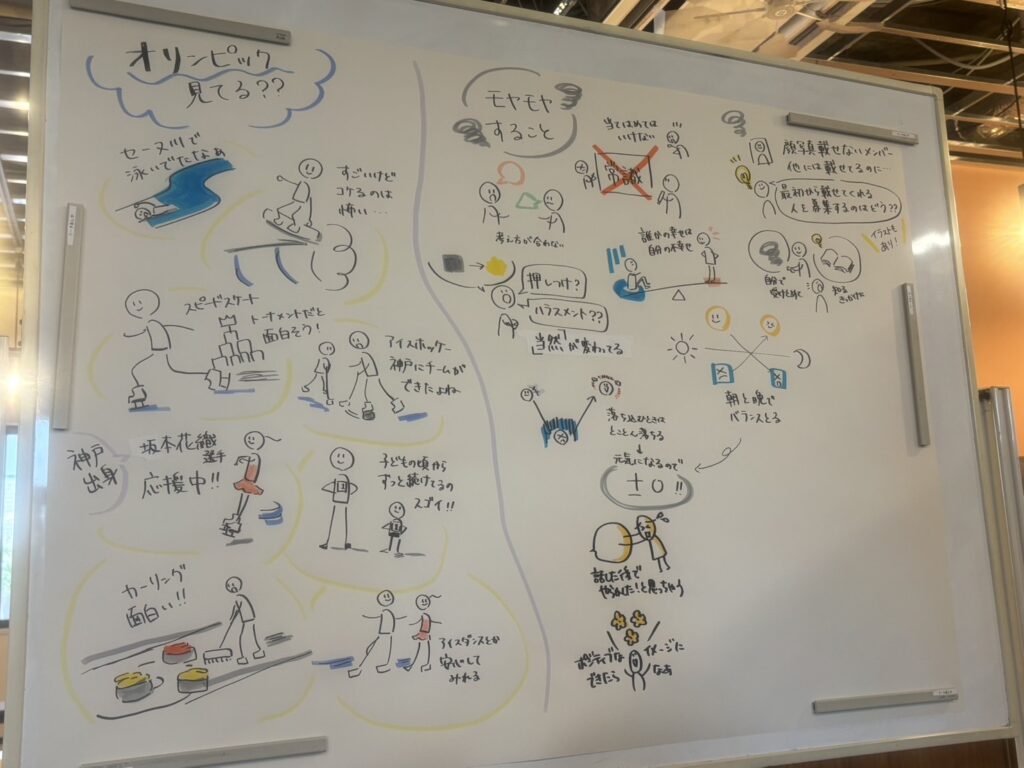 オリンピック
見てる??
セーヌ川で
泳いでたなぁ
すごいけど
コケるのは
怖い…
スピードスケート
トーナメントだと
面白そう!
アイスホッケー
神戸にチームが
できたよね
神戸
出身
坂本花織
選手
応援中!!
子どもの頃から
ずっと続けてるの
スゴイ!!
カーリング
面白い!!
アイスダンスとか
安心して
みれる
モヤモヤ
すること
考え方が合わない
当てはめては
いけない
押しつけ?
ハラスメント??
当然が変わってる
誰かの幸せは
自分の不幸せ
顔写真載せないメンバー
他には載せてるのに…
最初から載せてくれる
人を募集するのはどう??
イラストも
あり!
自分で
知る
きっかけに
朝と晩で
バランスとる
落ち込むときは
とことん落ちる
元気になるので
±0!!
話した後で
やらかした!と思っちゃう
ポジティブな
イメージに
できたら